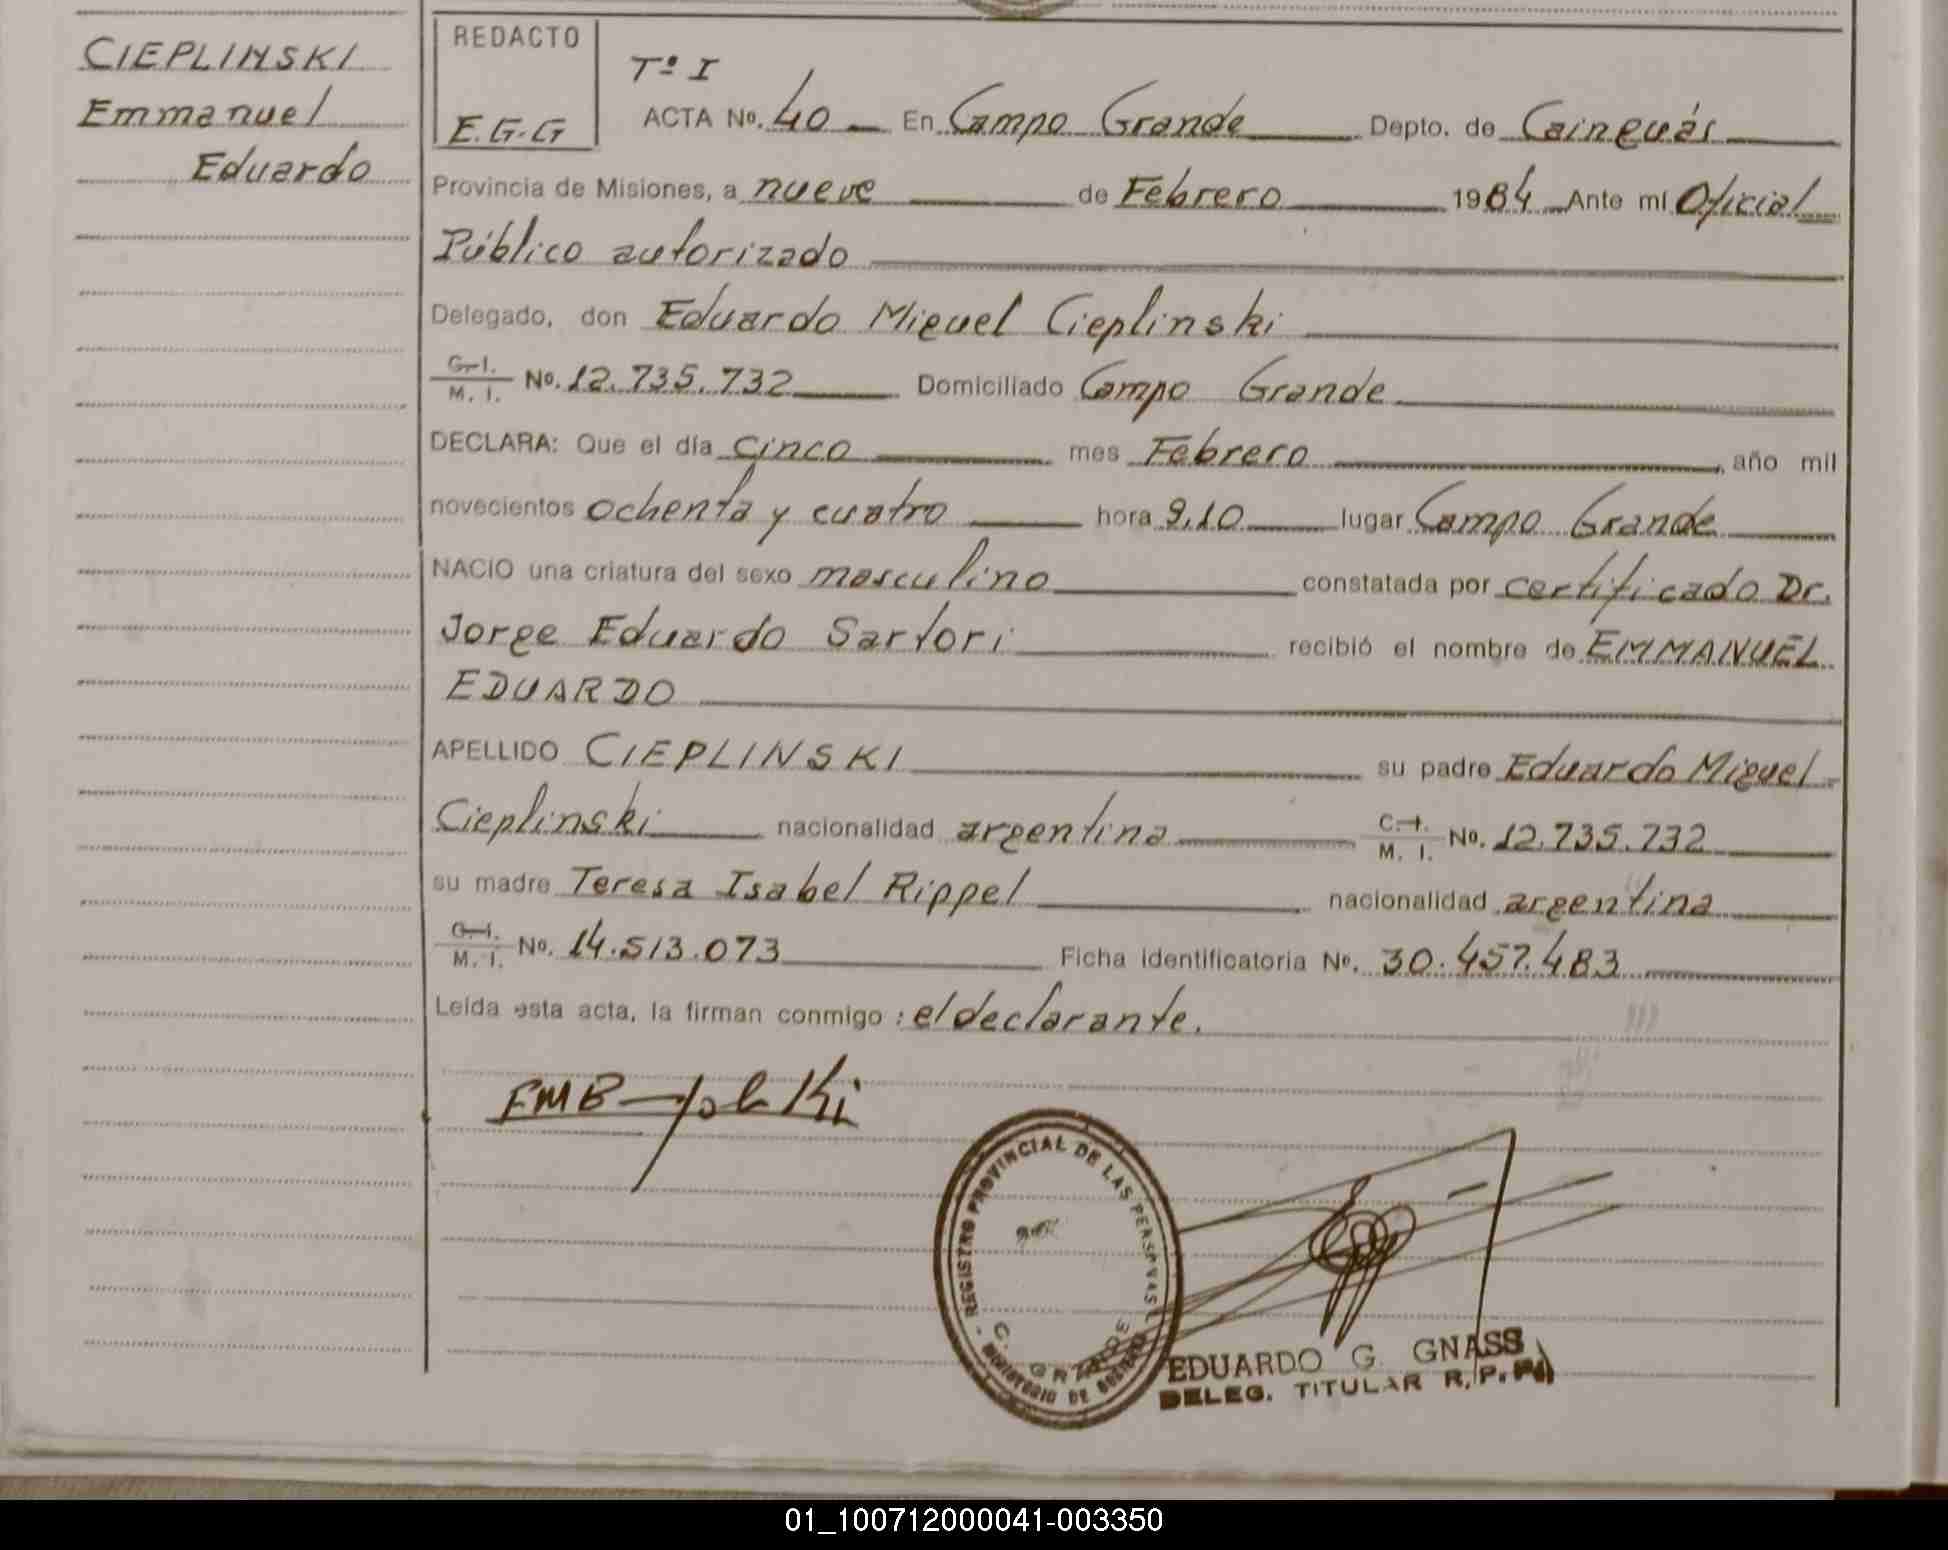 CIEPLINSKI
Emmanuel
Eduardo
REDACTO
E.G.G
Tº I
ACTA Nº. 40 En Campo Grande Depto. de Cainguás
Provincia de Misiones, a nueve de Febrero 1984 Ante mí Oficial
Público autorizado
Delegado, don Eduardo Miguel Cieplinski
C. I. M. I. Nº. 12.735.732 Domiciliado Campo Grande
DECLARA: Que el día cinco mes Febrero, año mil
novecientos ochenta y cuatro hora 9,10 lugar Campo Grande
NACIO una criatura del sexo masculino constatada por certificado Dr.
Jorge Eduardo Sartori recibió el nombre de EMMANUEL
EDUARDO
APELLIDO CIEPLINSKI su padre Eduardo Miguel
Cieplinski nacionalidad argentina C. I. M. I. Nº. 12.735.732
su madre Teresa Isabel Rippel nacionalidad argentina
C. I. M. I. Nº. 14.513.073 Ficha identificatoria Nº. 30.457.483
Leída esta acta, la firman conmigo: el declarante.
REGISTRO PROVINCIAL DE LAS PERSONAS
C. GRANDE
EDUARDO G. GNASS
DELEG. TITULAR R.P.P.
01_100712000041-003350